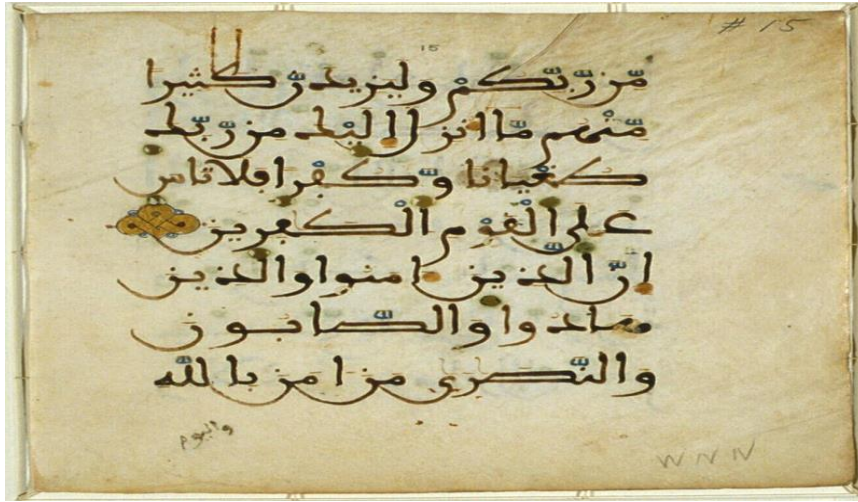 # 15
15
مّن رّبّكم وليزيدنّ كثيرا
مّنهم مّا انزل اليك من رّبّك
طغيانا وّكفرا فلا تاس
على القوم الكفرين
انّ الّذين امنوا والذين
هادوا والصّابون
والنّصرى من امن باللّه
واليوم